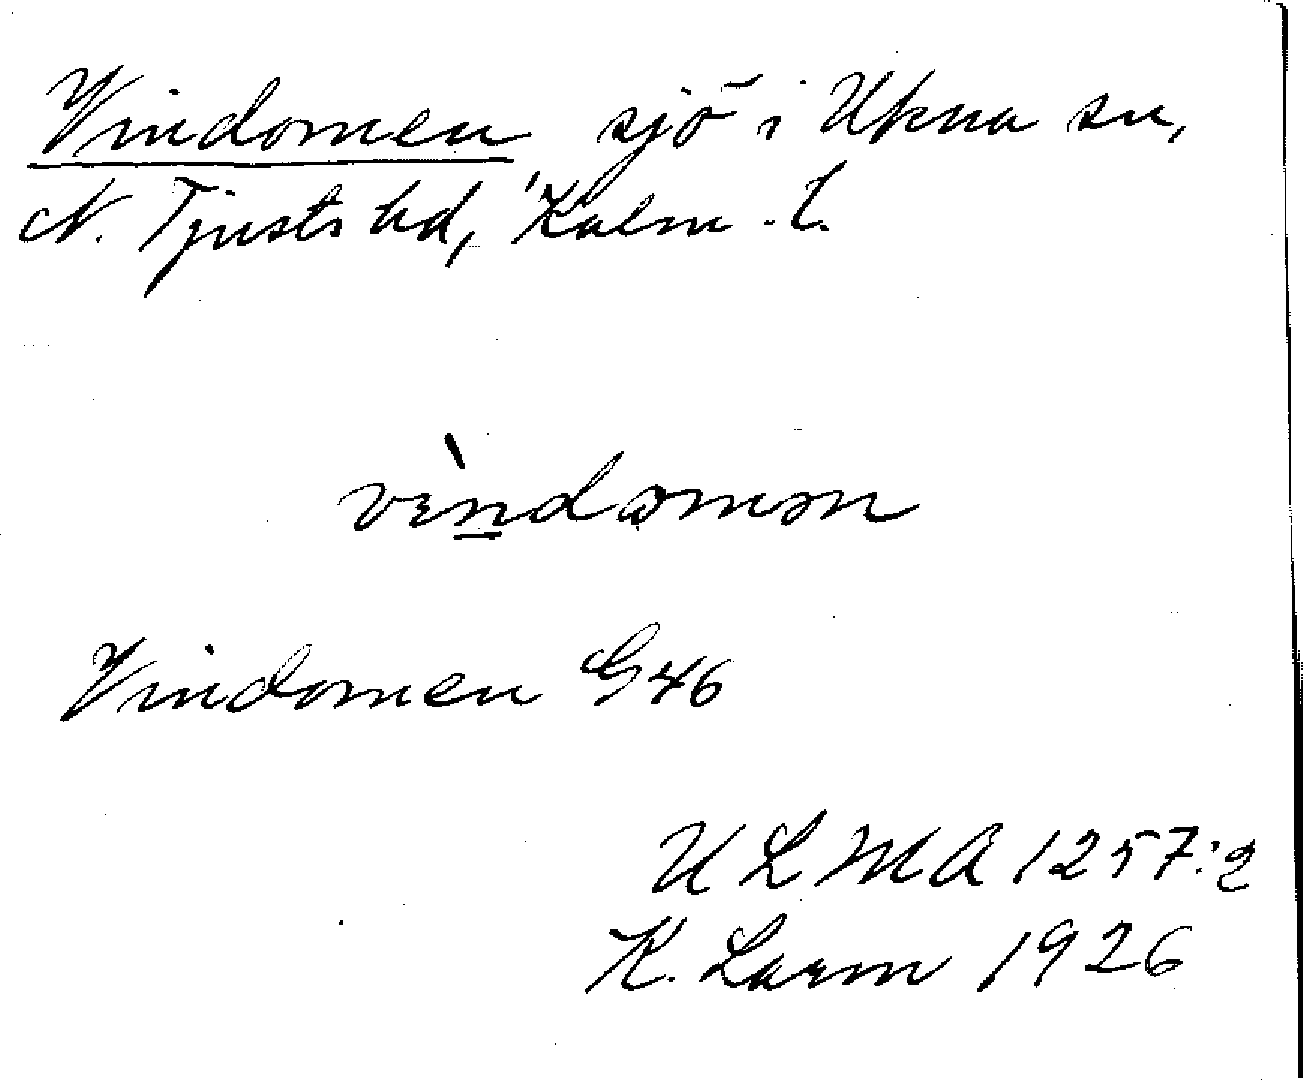 Vindomen sjö i Ukna sn,
N. Tjusts hd, Kalm. l.
vìndomən
Vindomen G46
ULMA 1257:2
K. Larm 1926